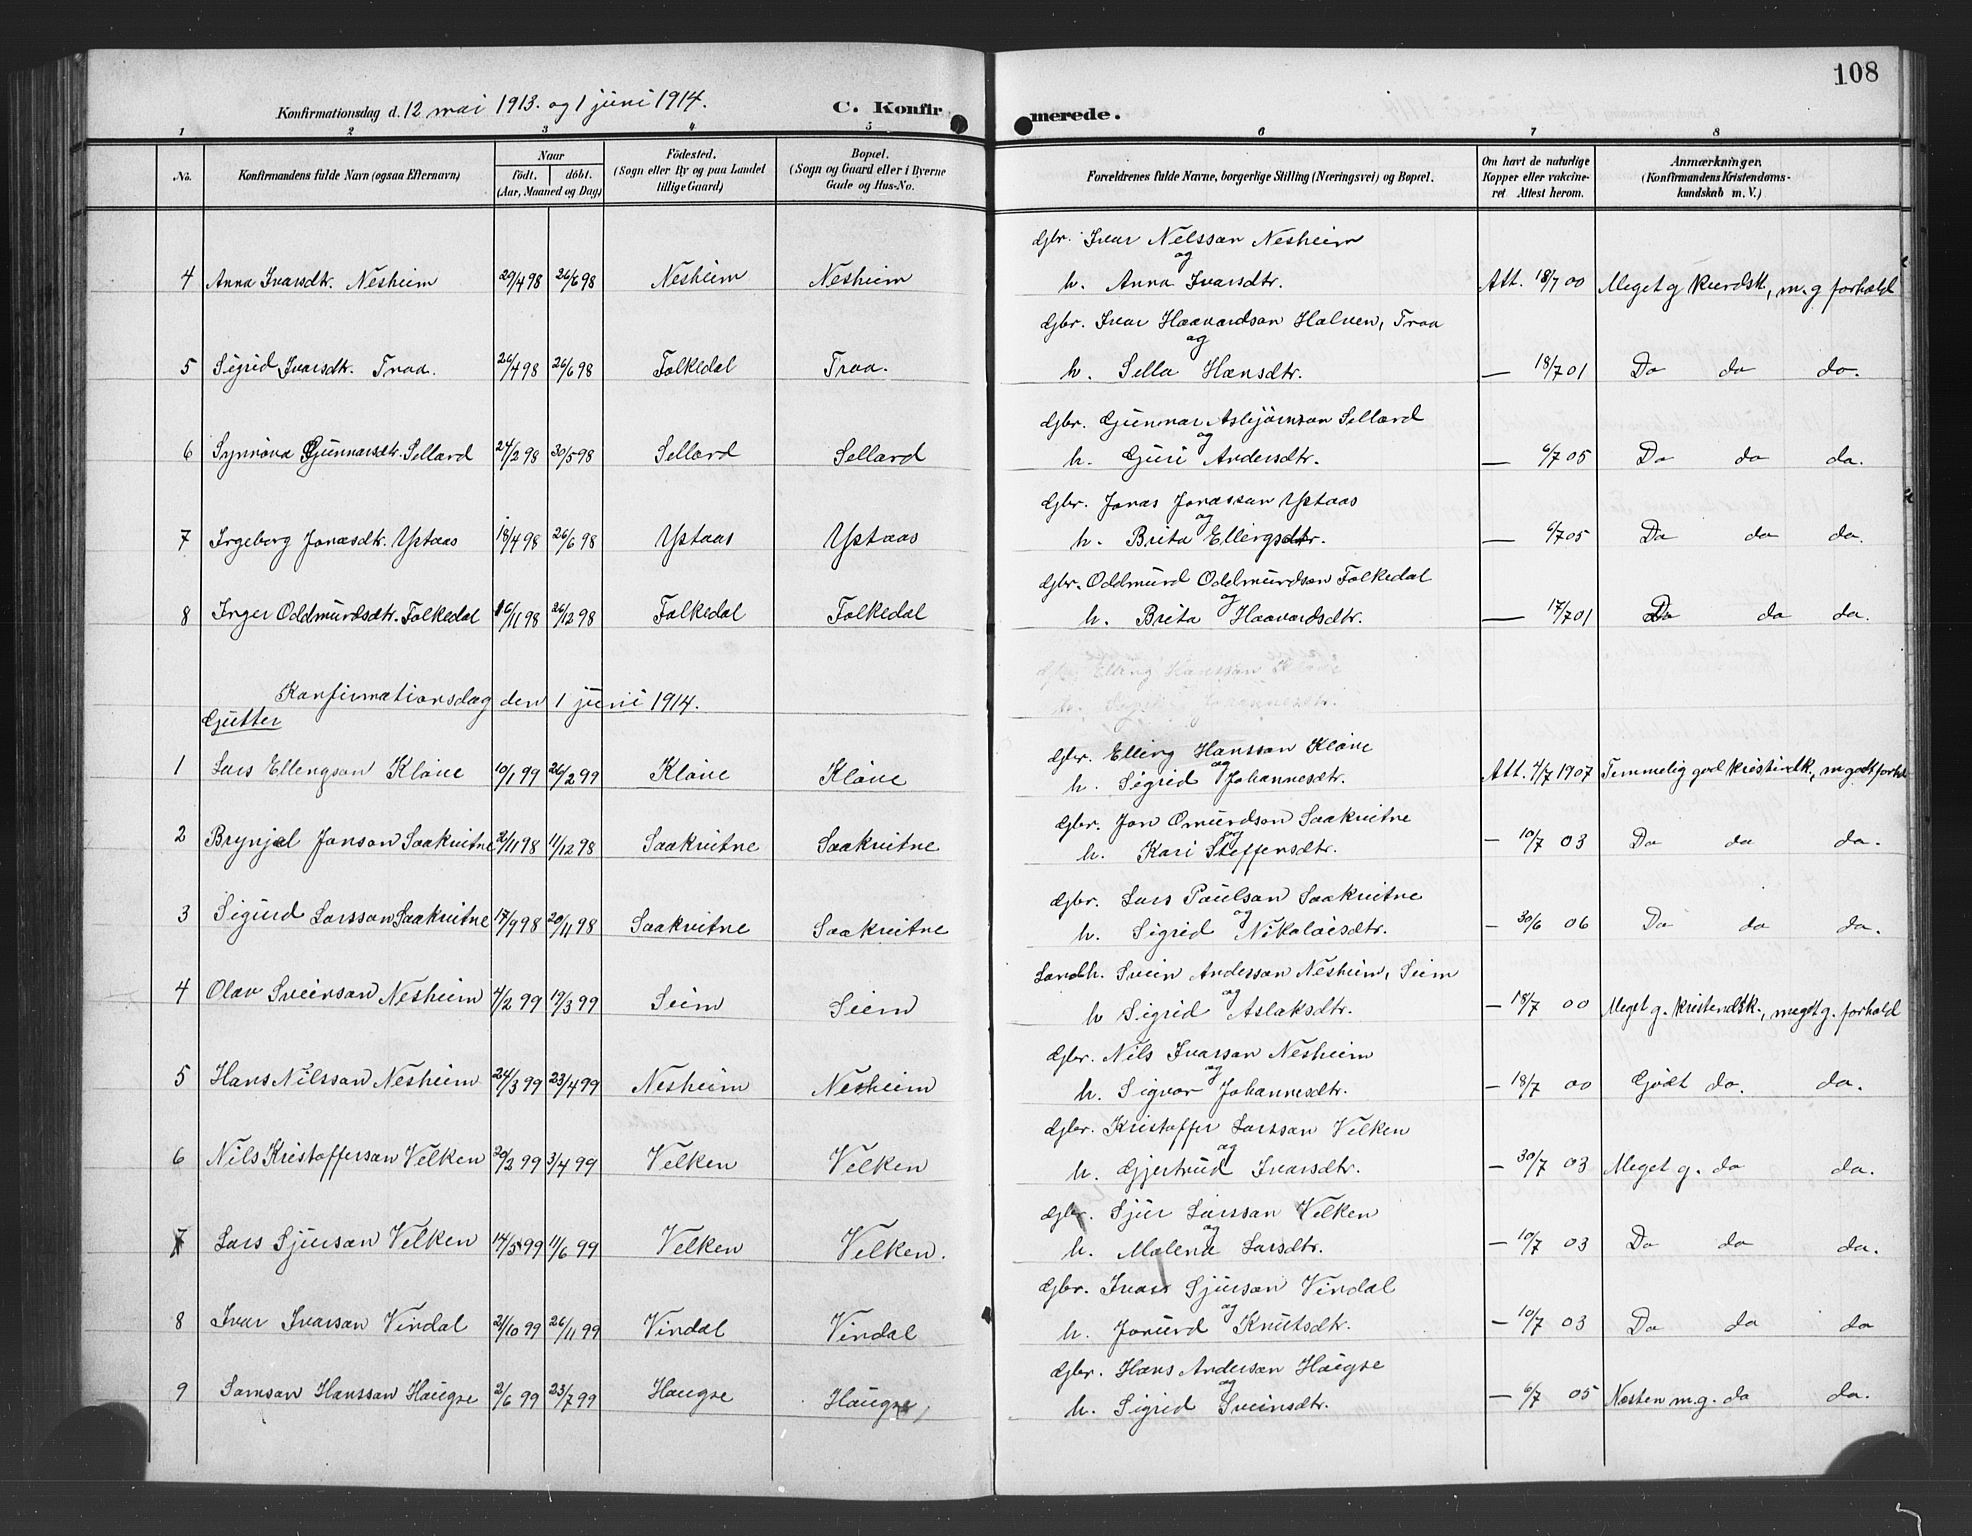 108
Konfirmationsdag d. 12 mai 1913. og 1 juni 1914.
C. Konfirmerede.
1 2 3 4 5 6 7 8
No. Konfirmandens fulde Navn (ogsaa Efternavn) Naar født. døbt. (Aar, Maaned og Dag) Fødested. (Sogn eller By og paa Landet tillige Gaard) Bopæl. (Sogn og Gaard eller i Byerne Gade og Hus-No. Forældrenes fulde Navne, borgerlige Stilling (Næringsvei) og Bopæl. Om havt de naturlige Kopper eller vakcineret Attest herom. Anmærkninger. (Konfirmandens Kristendomskundskab m. V.)
Gbr. Ivar Nelssan Nesheim
og
4 Anna Ivarsdtr. Nesheim 29/4 98 26/6 98 Nesheim Nesheim h. Anna Ivarsdtr. Att. 18/7 00 Meget g kundsk, m. g forhold
Gbr. Ivar Haavardson Halven, Traa
og
5 Sigrid Ivarsdtr. Traa. 26/4 98 26/6 98 Folkedal Traa. h. Sella Hansdtr. — 18/7 01 Do do do.
Gbr. Gunnar Asbjørnson Sellard
og
6 Synnøva Gunnarsdtr. Sellard 24/2 98 30/5 98 Sellard Sellard h. Guri Andersdtr. — 6/7 05 Do do do.
Gbr. Jonas Jonassan Ystaas
og
7 Ingeborg Jonasdtr. Ystaas 18/4 98 26/6 98 Ystaas Ystaas h. Brita Ellingsdtr. — 6/7 05 Do do do.
Gbr. Oddmund Oddmundson Folkedal
og
8 Inger Oddmundsdtr. Folkedal 16/11 98 26/12 98 Folkedal Folkedal h. Brita Haavardsdtr. — 17/7 01 Do do do.
Gbr. Elling Hanssan Kløve
Konfirmationsdag den 1 juni 1914.
Gutter
Gbr. Elling Hanssan Kløve
og
1 Lars Ellingson Kløve 10/1 99 26/2 99 Kløve Kløve h. Sigrid Johannesdtr. Att. 4/7 1907 Temmelig god kristindk, m godt forhol
Gbr. Jon Omundson Saakvitne
og
2 Brynjel Jonson Saakvitne 2/11 98 11/12 98 Saakvitne Saakvitne h. Kari Steffensdtr. — 10/7 03 Do do do.
Gbr. Lars Paulsan Saakvitne
og
3 Sigurd Larsson Saakvitne 17/9 98 20/11 98 Saakvitne Saakvitne h. Sigrid Nikolaisdtr. — 30/6 06 Do do do.
Landh. Svein Anderssan Nesheim, Seim
og
4 Olav Sveinsan Nesheim 4/2 99 19/3 99 Seim Seim h Sigrid Aslaksdtr. — 18/7 00 Meget g. kristendsk., meget g. forhold
Gbr. Nils Ivarssan Nesheim
og
5 Hans Nilssan Nesheim 24/3 99 23/4 99 Nesheim Nesheim h. Sigvor Johannesdtr. — 18/7 00 Godt do. do.
Gbr. Kristoffer Larssan Velken
og
6 Nils Kristoffersan Velken 20/2 99 3/4 99 Velken Velken h. Gjertrud Ivarsdtr. — 30/7 03 Meget g. do do.
Gbr. Sjur Larssan Velken
og
7 Lars Sjursan Velken 14/5 99 11/6 99 Velken Velken. h. Malena Larsdtr. — 10/7 03 Do do do.
Gbr. Ivar Sjursan Vindal
og
8 Ivar Ivarsan Vindal 21/10 99 26/11 99 Vindal Vindal h. Jorund Knutsdtr. — 10/7 03 Do do do
Gbr. Hans Andersan Haugse
og
9 Samsan Hanssan Haugse 2/6 99 23/7 99 Haugse Haugse h. Sigrid Sveinsdtr. — 6/7 05 Næsten m. g. do do.